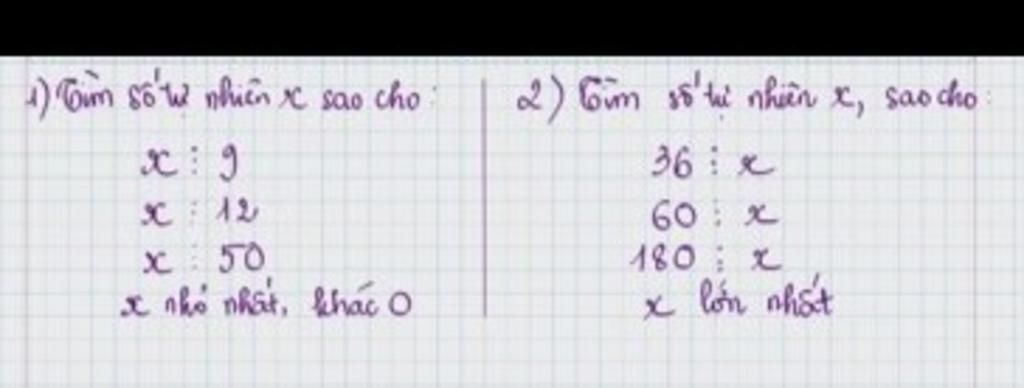 1) Tìm số tự nhiên x sao cho:
x ⋮ 9
x ⋮ 12
x ⋮ 50
x nhỏ nhất, khác 0
2) Tìm số tự nhiên x, sao cho:
36 ⋮ x
60 ⋮ x
180 ⋮ x
x lớn nhất